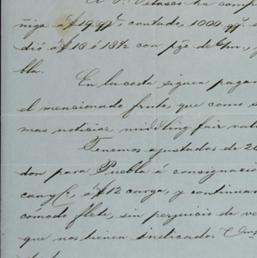 A D. Velasco ha comp
ñiga á $19.99 contado, 1000 qq. e
dió á $18 á 18½ con pzo de 6m, y
bla.
En la costa siguen pagan
el mencionado fruto, que como s
mas noticias middling fair val
Tenemos ajustadas de 20
don para Puebla á consignació
cang á $12 carga, y continuam
comodo flete, sin perjuicio de ve
que nos tienen indicados